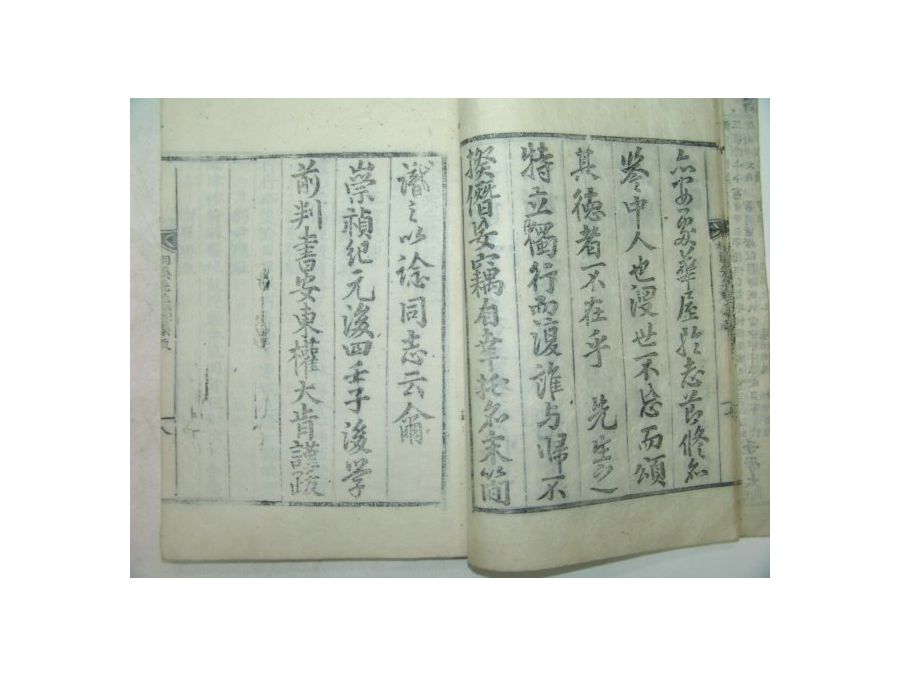 華屋於志節修名
譽中人也沒世不忘而頌
其德者不在乎 先生之
特立獨行而復誰与歸不
揆僭妄竊自幸托名末簡
識之以諗同志云爾
崇禎紀元後四壬子後學
前判書安東權大肯謹跋